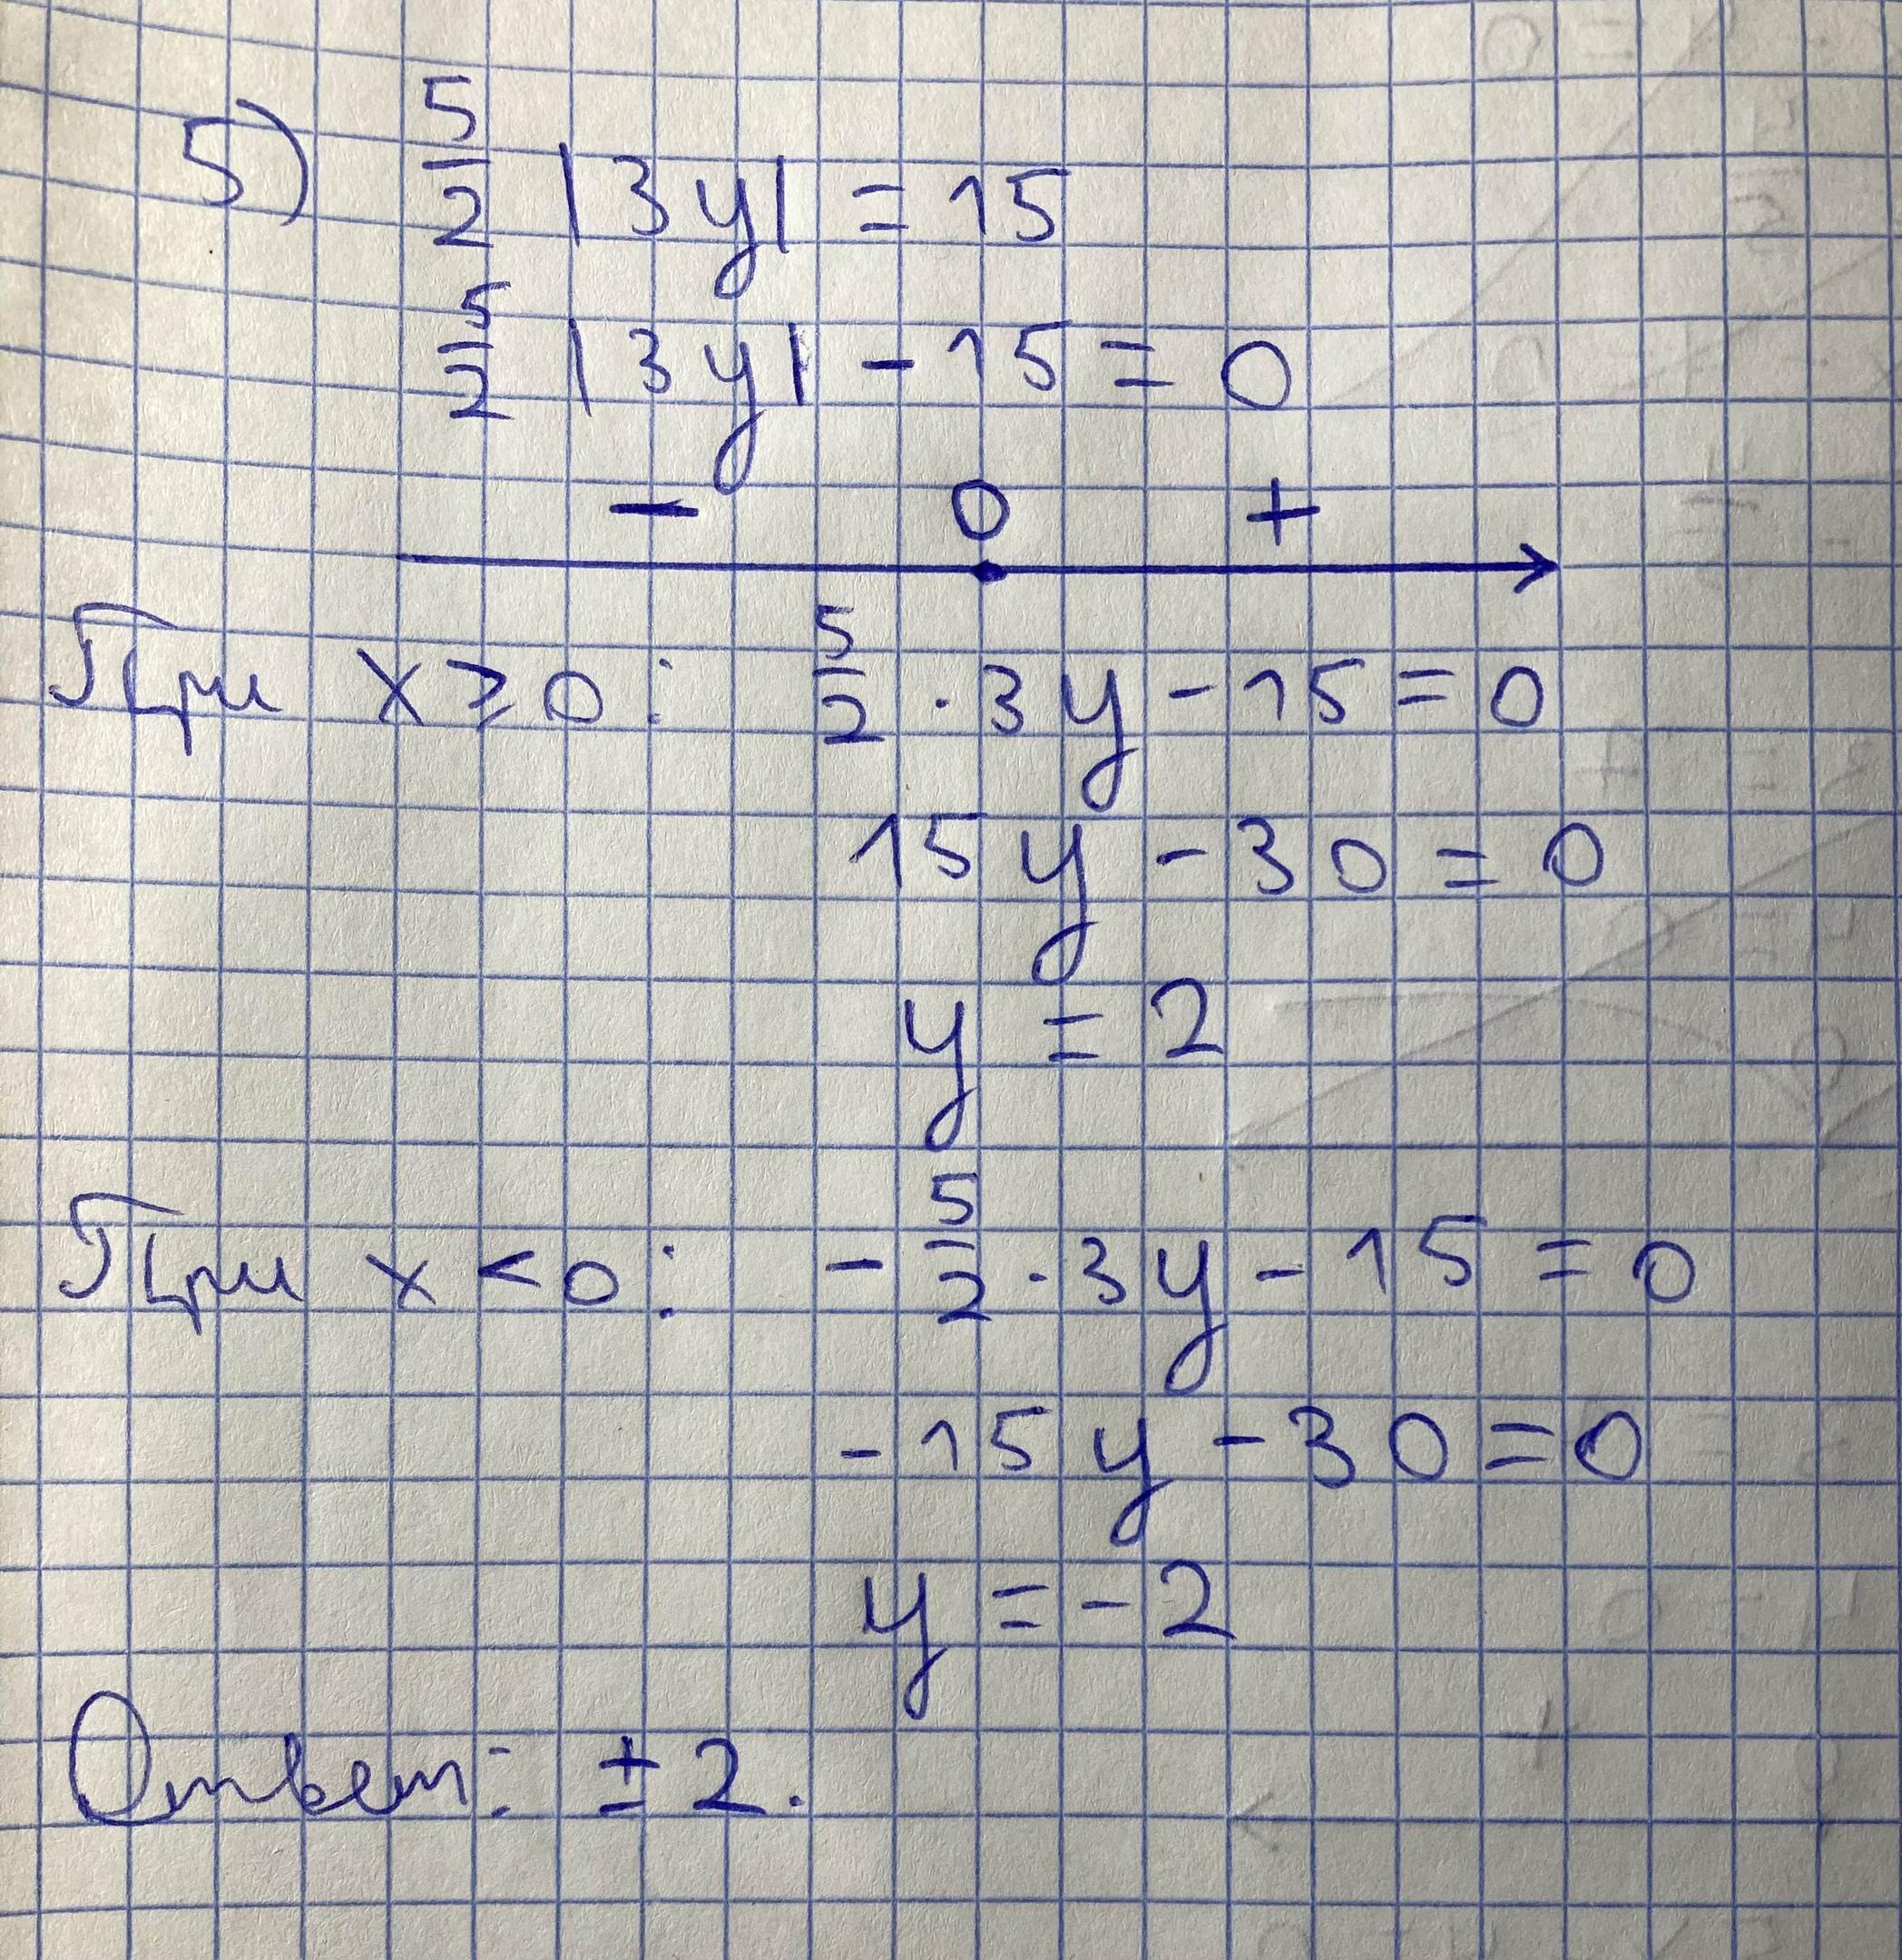 5) 5/2 |3y| = 15
5/2 |3y| - 15 = 0
- 0 +
При x ≥ 0: 5/2 · 3y - 15 = 0
15y - 30 = 0
y = 2
При x < 0: - 5/2 · 3y - 15 = 0
-15y - 30 = 0
y = -2
Ответ: ± 2.